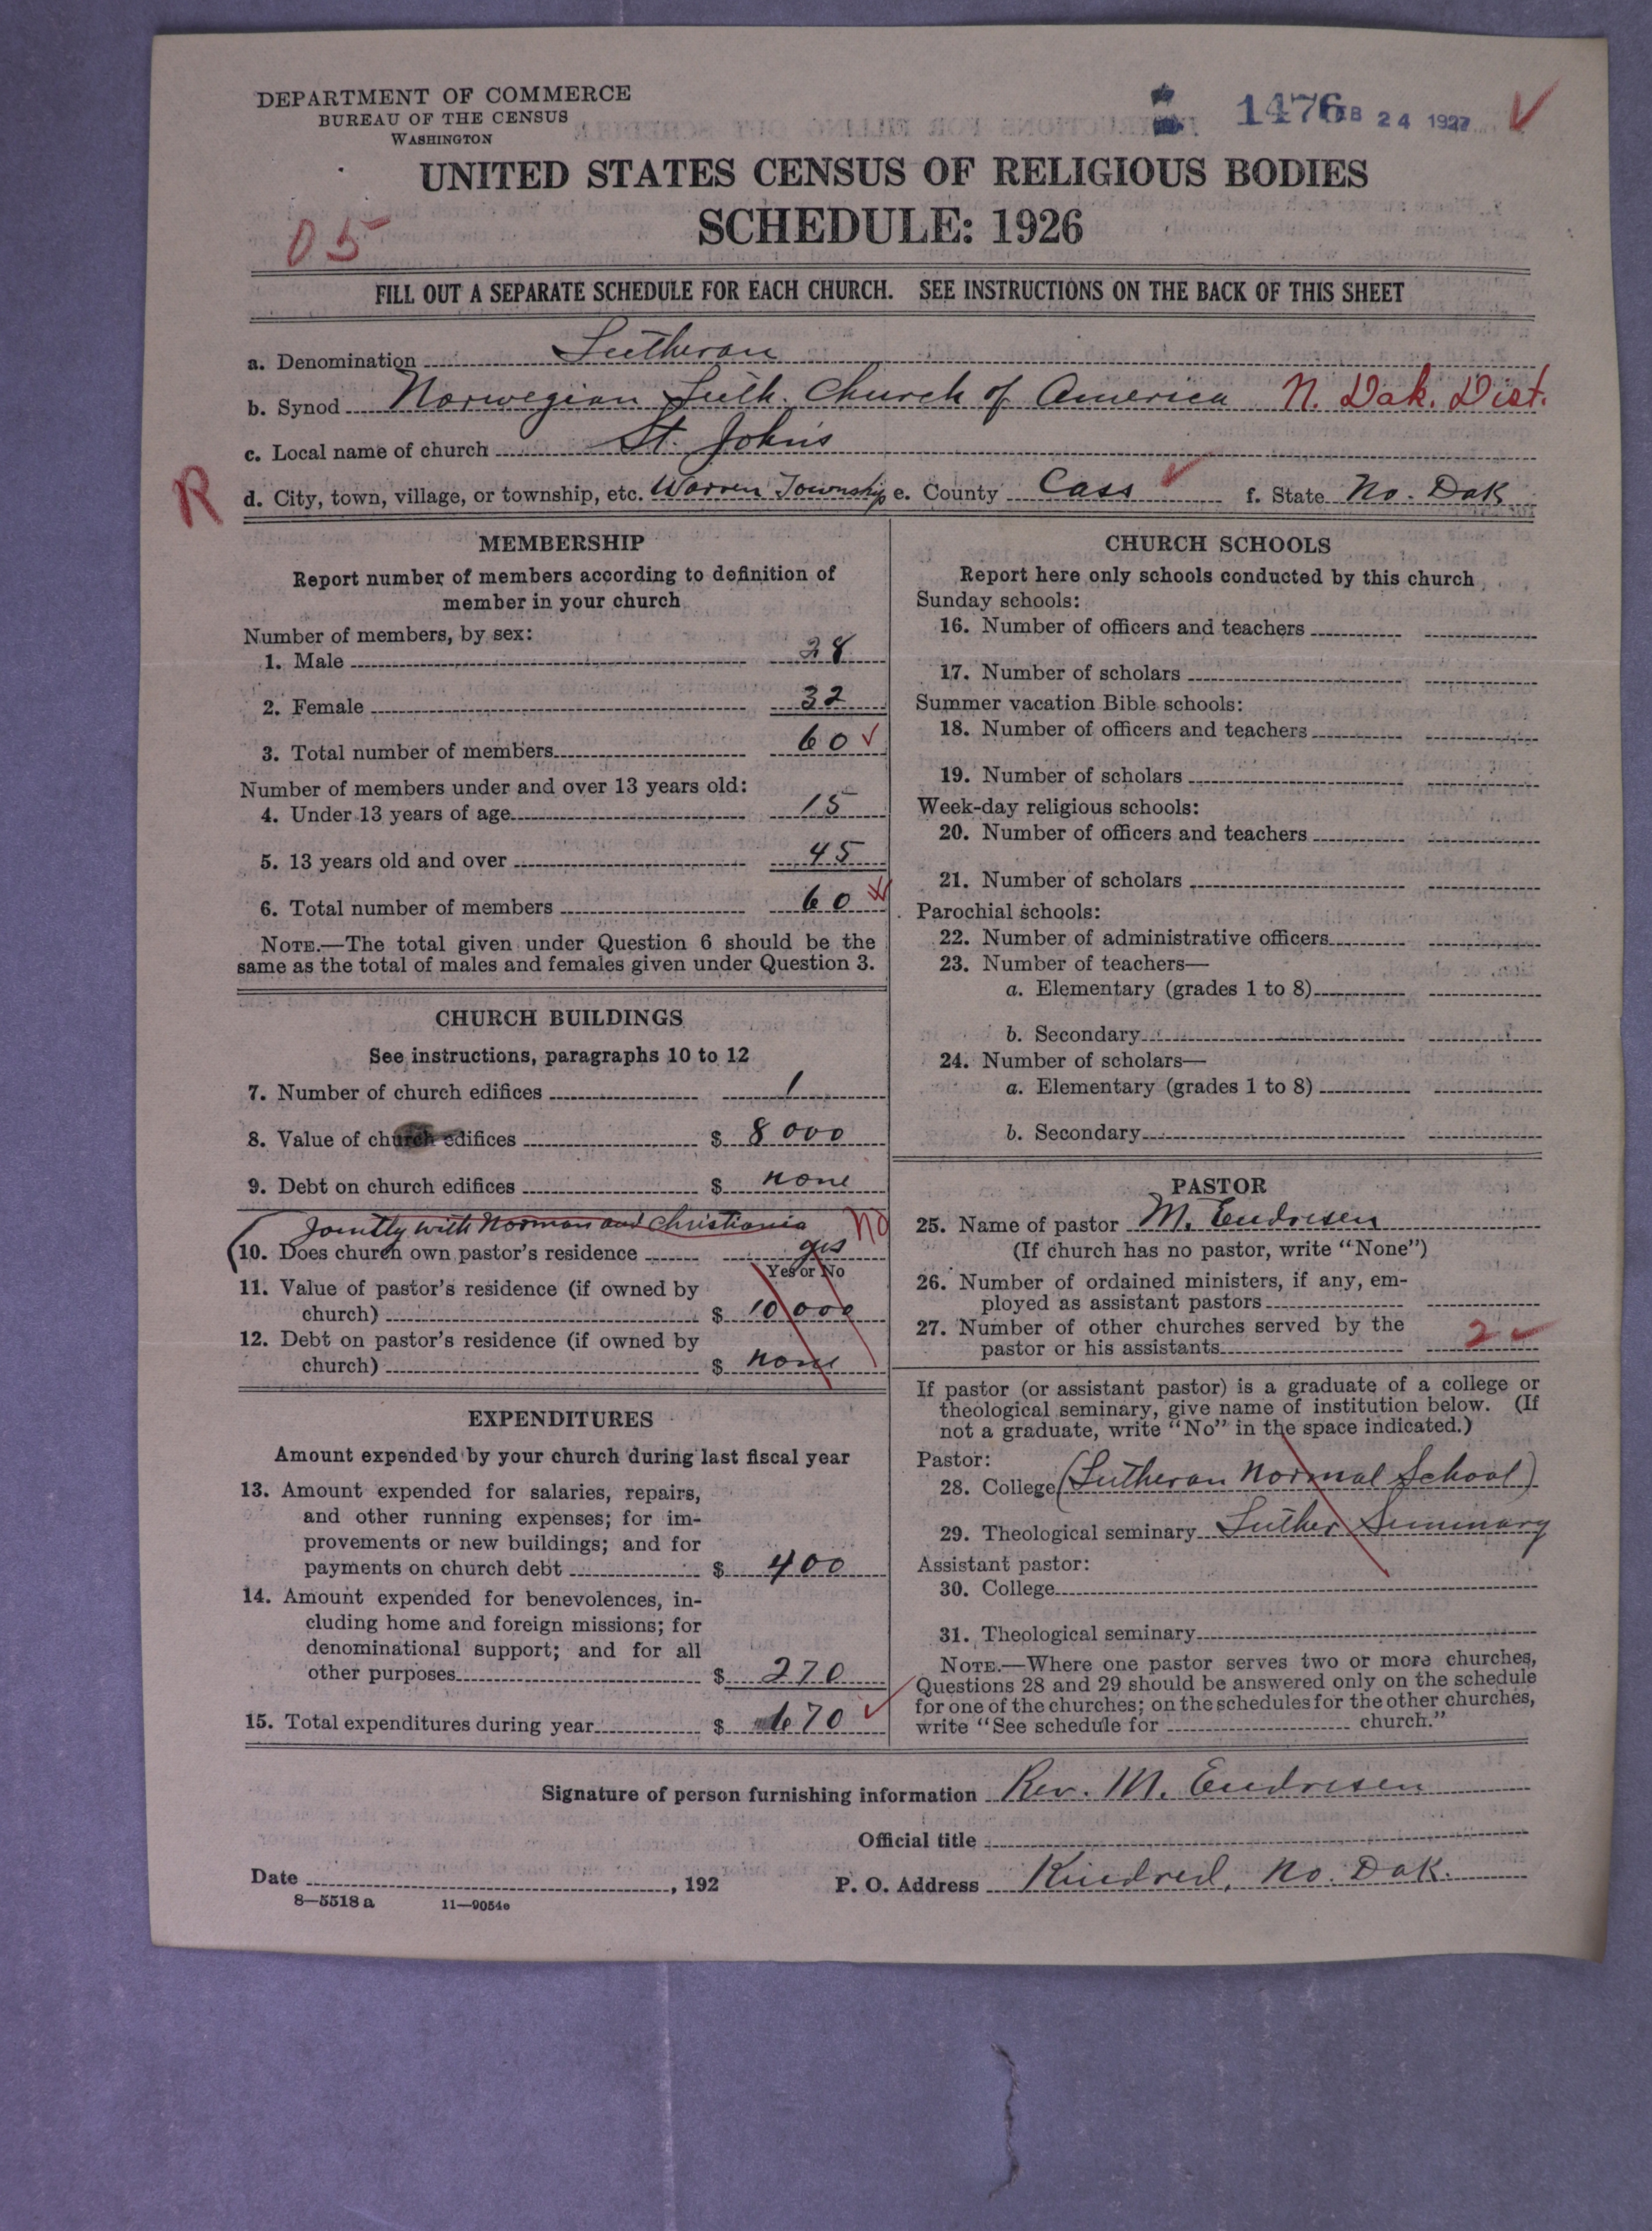 DEPARTMENT OF COMMERCE
BUREAU OF THE CENSUS
WASHINGTON
1476 FEB 24 1927
UNITED STATES CENSUS OF RELIGIOUS BODIES
SCHEDULE: 1926
05
FILL OUT A SEPARATE SCHEDULE FOR EACH CHURCH. SEE INSTRUCTIONS ON THE BACK OF THIS SHEET
a. Denomination Lutheran
b. Synod Norwegian Luth. Church of America N. Dak. Dist.
c. Local name of church St. John's
R
d. City, town, village, or township, etc. Warren Township e. County Cass f. State No. Dak
MEMBERSHIP
Report number of members according to definition of
member in your church
Number of members, by sex:
1. Male 28
2. Female 32
3. Total number of members 60
Number of members under and over 13 years old:
4. Under 13 years of age 15
5. 13 years old and over 45
6. Total number of members 60
NOTE.—The total given under Question 6 should be the
same as the total of males and females given under Question 3.
CHURCH BUILDINGS
See instructions, paragraphs 10 to 12
7. Number of church edifices 1
8. Value of church edifices $ 8000
9. Debt on church edifices $ none
Jointly with Norman and Christiania no
10. Does church own pastor's residence yes
Yes or No
11. Value of pastor's residence (if owned by
church) $ 10000
12. Debt on pastor's residence (if owned by
church) $ none
EXPENDITURES
Amount expended by your church during last fiscal year
13. Amount expended for salaries, repairs,
and other running expenses; for im-
provements or new buildings; and for
payments on church debt $ 400
14. Amount expended for benevolences, in-
cluding home and foreign missions; for
denominational support; and for all
other purposes $ 270
15. Total expenditures during year $ 670
CHURCH SCHOOLS
Report here only schools conducted by this church
Sunday schools:
16. Number of officers and teachers
17. Number of scholars
Summer vacation Bible schools:
18. Number of officers and teachers
19. Number of scholars
Week-day religious schools:
20. Number of officers and teachers
21. Number of scholars
Parochial schools:
22. Number of administrative officers
23. Number of teachers—
a. Elementary (grades 1 to 8)
b. Secondary
24. Number of scholars—
a. Elementary (grades 1 to 8)
b. Secondary
PASTOR
25. Name of pastor M. Endresen
(If church has no pastor, write "None")
26. Number of ordained ministers, if any, em-
ployed as assistant pastors
27. Number of other churches served by the
pastor or his assistants 2
If pastor (or assistant pastor) is a graduate of a college or
theological seminary, give name of institution below. (If
not a graduate, write "No" in the space indicated.)
Pastor:
28. College (Lutheran Normal School)
29. Theological seminary Luther Seminary
Assistant pastor:
30. College
31. Theological seminary
NOTE.—Where one pastor serves two or more churches,
Questions 28 and 29 should be answered only on the schedule
for one of the churches; on the schedules for the other churches,
write "See schedule for church."
Signature of person furnishing information Rev. M. Endresen
Official title
Date , 192 P. O. Address Kindred, No. Dak.
8—5518 a 11—9054c